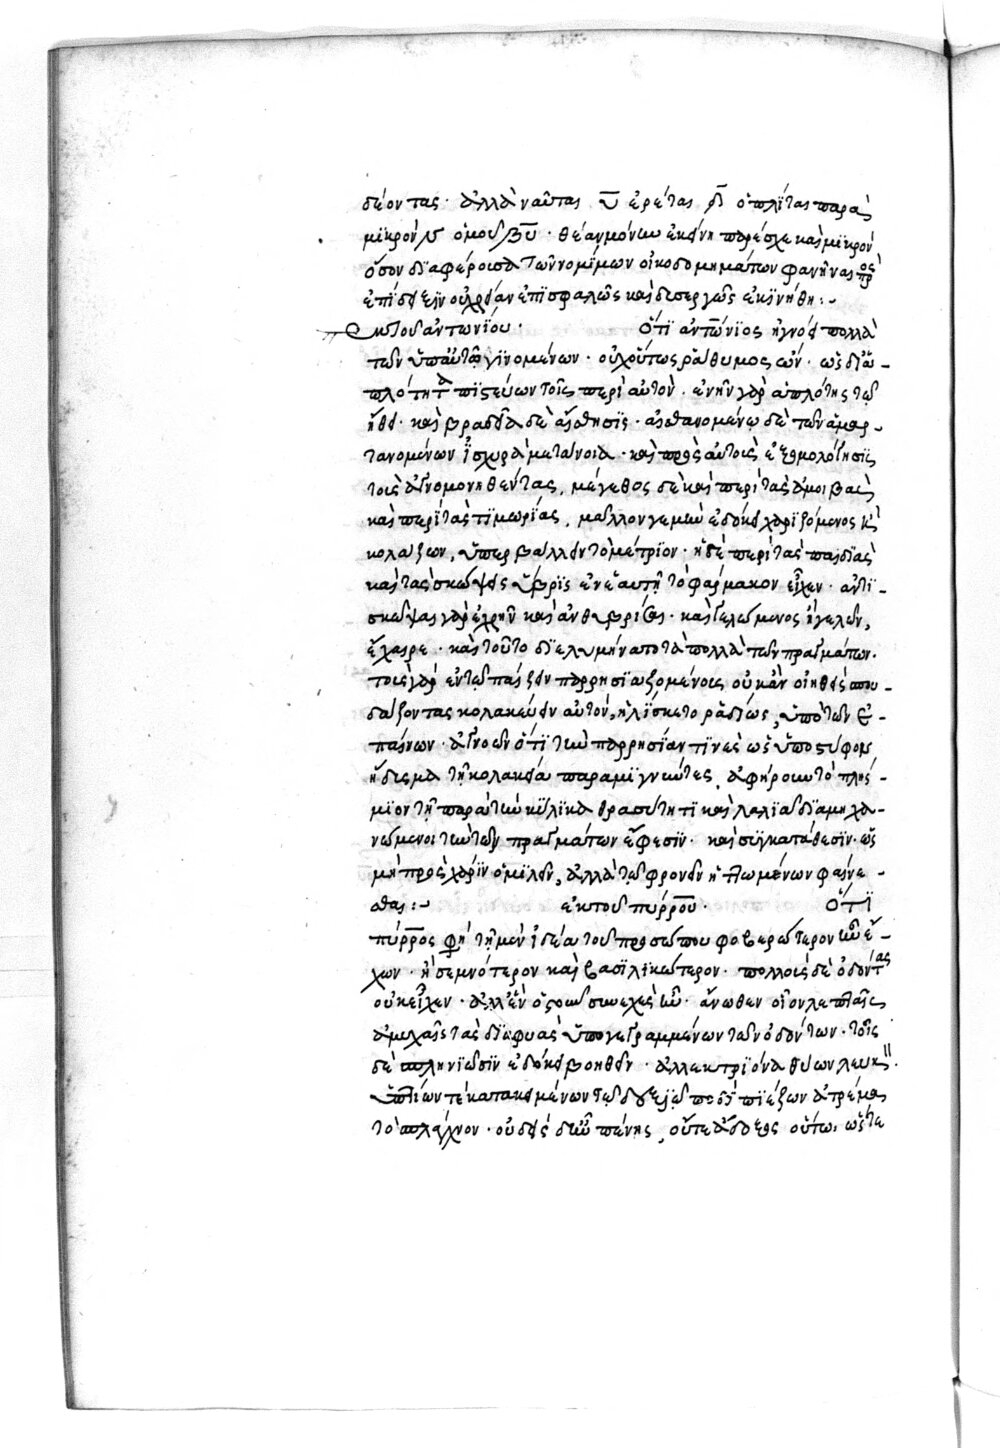 δέοντας· ἀλλὰ ναύτας υ̅ ἐρέτας ͵δ̅ ὁπλίτας παρὰ
μικρὸν γ̅ ὁμοῦ β̅υ̅· θέαν μόνην ἐκείνη παρέσχε καὶ μικρὸν
ὅσον διαφέρουσα τῶν μονίμων οἰκοδομημάτων φανῆναι πρὸς
ἐπίδειξιν οὐ χρείαν ἐπισφαλῶς καὶ δυσέργως ἐκινήθη:-
Ἐκ τοῦ ἀντωνίου· Ὅτι ἀντώνιος ἠγνόει πολλὰ
τῶν ὑπ' αὐτῶ γινομένων· οὐχ οὕτως ῥάθυμος ὢν· ὡς δι' ἁ-
πλότητα πιστεύων τοῖς περὶ αὐτὸν. ἐνῆν γὰρ ἁπλότης τῶ
ἤθει· καὶ βραδεῖα δὲ αἴσθησις· αἰσθανομένω δὲ τῶν ἁμαρ-
τανομένων ἰσχυρὰ μετάνοια· καὶ πρὸς αὐτοὺς ἐξομολόγησις
τοὺς ἀγνομονηθέντας, μέγεθος δὲ καὶ περὶ τὰς ἀμοιβὰς
καὶ περὶ τὰς τιμωρίας, μᾶλλόν γε μὴν ἐδόκει χαριζόμενος ἢ
κολάζων, ὑπερβάλλειν τὸ μέτριον· ἡ δὲ περὶ τὰς παιδιὰς
καὶ τὰς σκώψεις ὕβρις ἐν ἑαυτῆ τὸ φάρμακον εἶχεν· ἀντι-
σκῶψαι γὰρ ἐχρῆν καὶ ἀνθυβρίσαι· καὶ γελώμενος ἢ γελῶν,
ἔχαιρε· καὶ τοῦτο διελυμήνατο τὰ πολλὰ τῶν πραγμάτων.
τοὺς γὰρ ἐν τῶ παίζειν παρρησιαζομένους οὐκ ἂν οἰηθεὶς σπου-
δάζοντας κολακεύειν αὐτὸν, ἡλίσκετο ῥαδίως, ὑπὸ τῶν ἐ-
παίνων· ἀγνοῶν ὅτι τὴν παρρησίαν τινὲς ὡς ὑποστύφον
ἥδυσμα τῆ κολακεία παραμιγνύντες, ἀφήρουν τὸ πλήσ-
μιον τῆ παρὰ τὴν κύλικα θρασύτητι καὶ λαλιᾶ διαμηχα-
νώμενοι τὴν τῶν πραγμάτων ὕφεσιν· καὶ συγκατάθεσιν· ὡς
μὴ πρὸς χάριν ὁμιλεῖν, ἀλλὰ τῶ φρονεῖν ἡττωμένων φαίνε-
σθαι:- ἐκ τοῦ πύρρου· Ὅτι
πύρρος φησὶ τῆ μὲν ἰδέα τοῦ προσώπου φοβερώτερον ἦν ἔ-
χων· ἢ σεμνότερον καὶ βασιλικώτερον· πολλοὺς δὲ ὀδόντας
οὐκ εἶχεν· ἀλλ' ἓν ὀστοῦν συνεχὲς ἦν· ἄνωθεν οἷον λεπταῖς
ἀμυχαῖς τὰς διαφυὰς ὑπογεγραμμένων τῶν ὀδόντων· τοῖς
δὲ σπληνιῶσιν ἐδόκει βοηθεῖν· ἀλλεκτρυόνα θύων λευκὸν.
ὑπτίων τὲ κατακειμένων τῶ δεξιῶ ποδὶ πιέζων ἀτρέμα
τὸ σπλάγχνον· οὐδεὶς δ' ἦν πένης, οὔτε ἄδοξος οὕτω, ὥστε